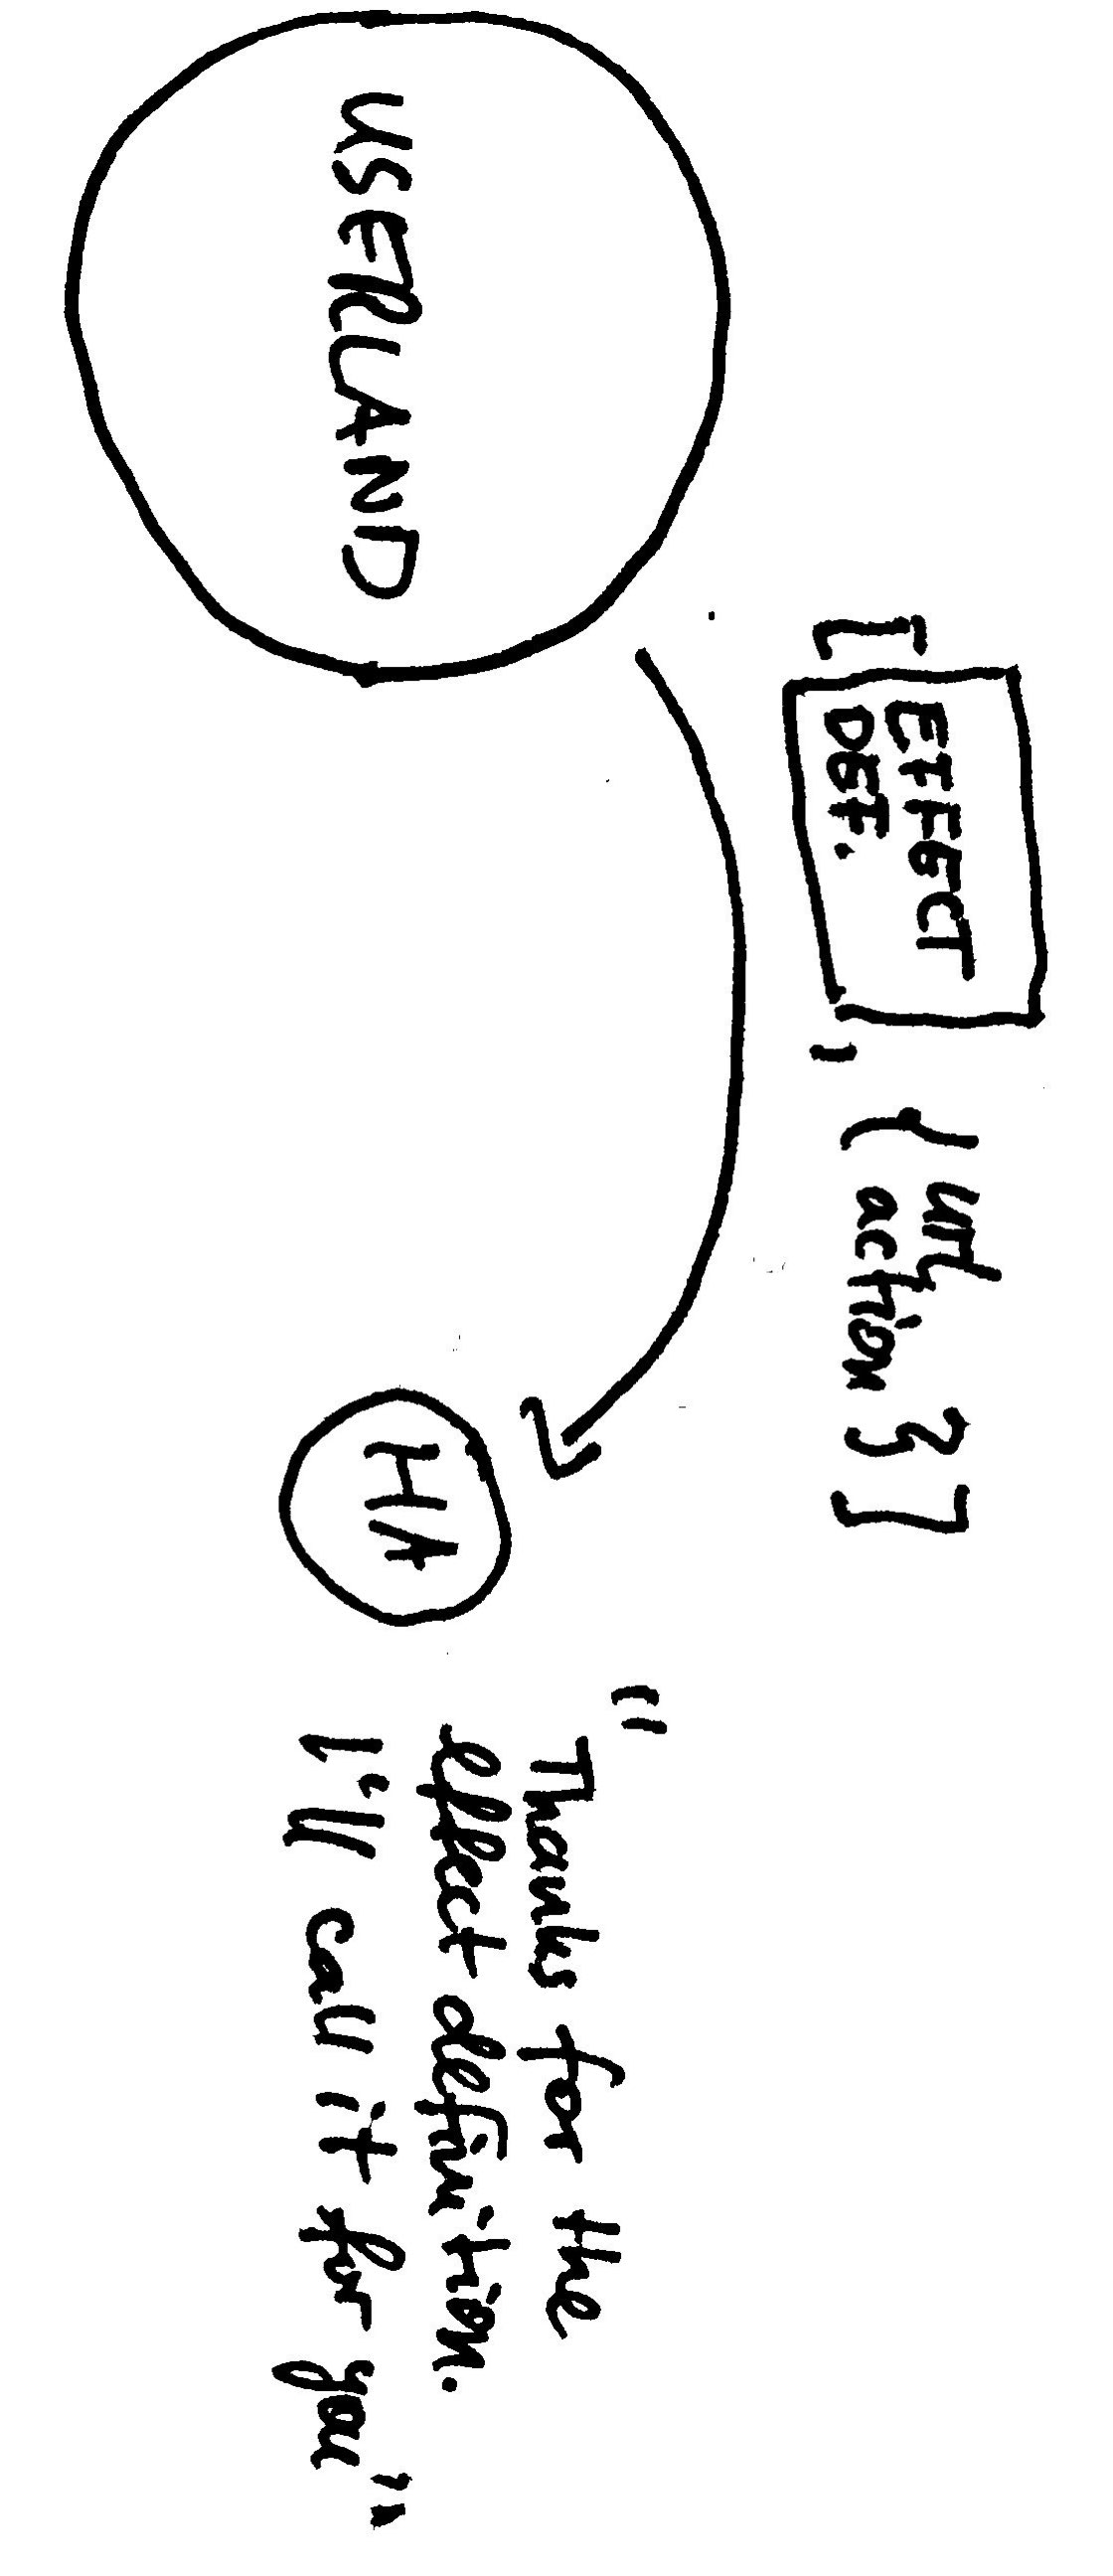 USERLAND
[ EFFECT DEF. , { url action } ]
HA
"Thanks for the
effect definition.
I'll call it for you"